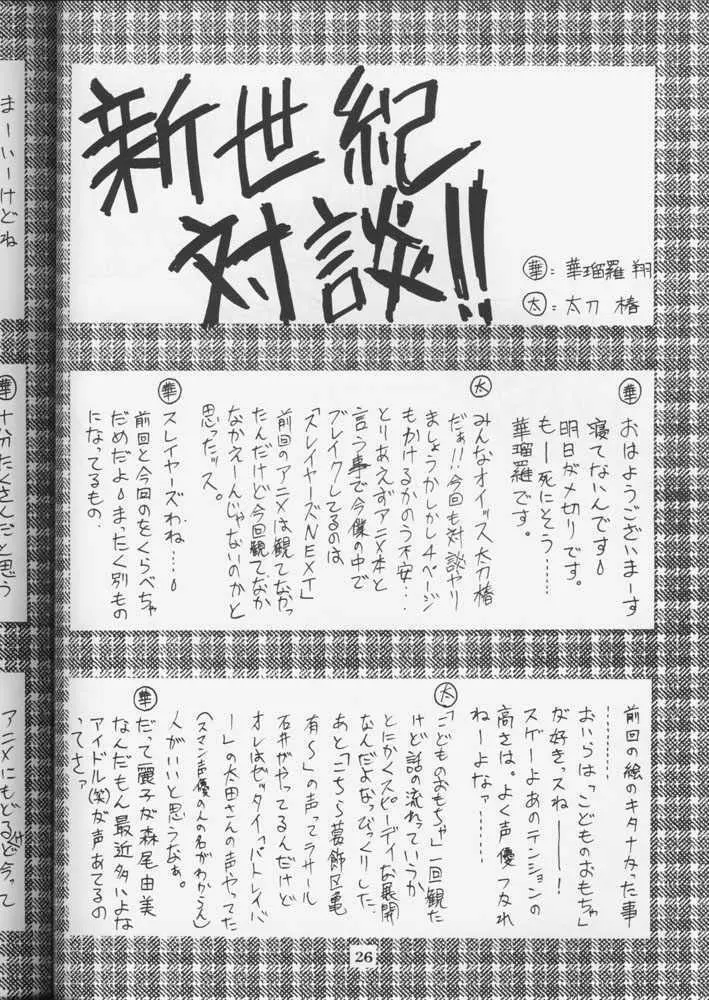 新世紀
対談!!
華:華瑠羅 翔
太:太刀 椿
華 おはようございまーす
寝てないんです
明日が〆切りです。
もー死にそう……
華瑠羅です。
太 みんなオイッス太刀椿
だぁ!!今回も対談ヤリ
ましょうかしかし4ページ
もかけるかのう不安…
とりあえずアニメ本と
言う事で今僕の中で
ブレイクしてるのは
「スレイヤーズNEXT」
前回のアニメは観てなかっ
たんだけど今回観てなか
なかえーんじゃないのかと
思ったッス。
華 スレイヤーズわね……
前回と今回のをくらべちゃ
だめだよまったく別もの
になってるもの、
………前回の絵のキタナかった事
おいらは「こどものおもちゃ」
が好きっスねー!
スゲーよあのテンションの
高さは。よく声優つかれ
ねーよなっ………
太 「こどものおもちゃ」一回観た
けど話の流れっていうか
とにかくスピーディな展開
なんだよなっびっくりした。
あと「こちら葛飾区亀
有〜」の声ってラサール
石井がやってるんだけど
オレはゼッタイ「パトレイバ
ー」の太田さんの声やってた
(スマン声優の人の名がわからん)
人がいいと思うなぁ。
華 だって麗子が森尾由美
なんだもん最近多いよな
アイドル(笑)が声あてるの
ってさっ
26
まーいーけどね
華 十分たくさんだと思う
アニメにもどるけど今って